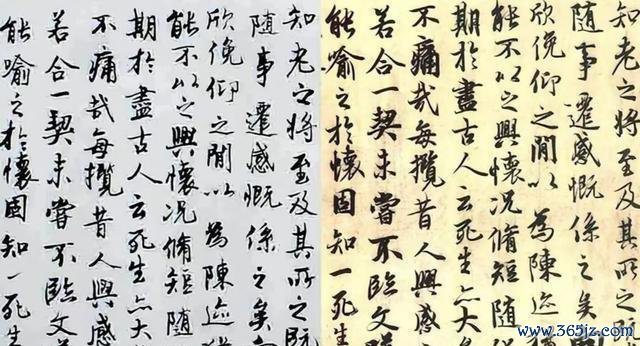 知老之將至及其所之既
隨事遷感慨係之矣
欣俛仰之閒以為陳迹
能不以之興懷况脩短隨
期於盡古人云死生亦大
不痛哉每攬昔人興感
若合一契未嘗不臨文
能喻之於懷固知一死生
知老之將至及其所之
隨事遷感慨係之矣
欣俛仰之閒以為陳迹
能不以之興懷况脩短隨
期於盡古人云死生亦大
不痛哉每攬昔人興感
若合一契未嘗不臨文
能喻之於懷固知一死生
www.365jz.com